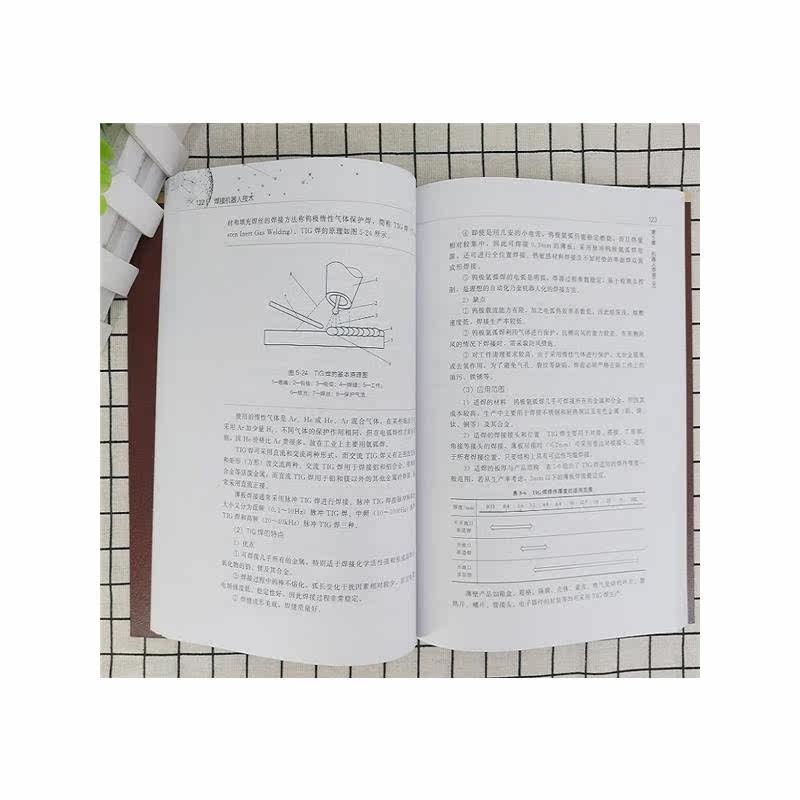 122 焊接机器人技术
材和填充焊丝的焊接方法称钨极惰性气体保护焊,简称 TIG 焊
sten Inert Gas Welding),TIG 焊的原理如图 5-24 所示。
图 5-24 TIG 焊的基本原理图
使用的惰性气体是 Ar、He 或 He、Ar 混合气体。在某些
采用 Ar 加少量 H₂。不同气体的保护作用相同,但在电弧
别。因 He 价格比 Ar 贵很多,故在工业上主要用氩弧焊。
TIG 焊可采用直流和交流两种形式,而交流 TIG 焊又有正弦
和矩形(方形)波交流两种。交流 TIG 焊用于焊接铝和铝合金、镁和镁
合金等活泼金属;而直流 TIG 焊用于铝和镁以外的其他金属
常采用直流正接。
薄板焊接通常采用脉冲 TIG 焊进行焊接。脉冲 TIG 焊按
大小又分为低频(0.1~10Hz)脉冲 TIG 焊、中频
TIG 焊和高频(20~40kHz)脉冲 TIG 焊三种。
(2)TIG 焊的特点
1)优点
① 可焊接几乎所有的金属,特别适于焊接化学活性强和
氧化物的铝、镁及其合金。
② 焊接过程中钨棒不熔化,弧长变化干扰因素相对较少,
电场强度低、稳定性好,因此焊接过程非常稳定。
③ 焊缝成形美观,焊缝质量好。
123
④ 即使是用几安的小电流,钨极氩弧仍能稳定燃烧,而且热量
相对较集中,因此可焊接 0.3mm 的薄板;采用脉冲钨极氩弧焊电
源,还可进行全位置焊接
或成形焊接。
⑤ 钨极氩弧焊的电弧是明弧,焊接过程参数稳定,易于检测及控
制,是理想的自动化乃至机器人化的焊接方法。
2)缺点
① 钨极载流能力有限,加之电弧热效率系数低,因此熔深浅,熔敷
速度低,焊接生产率较低。
② 钨极氩弧焊利用气体进行保护,抗侧向风的能力较差,在有侧向
风的情况下焊接时,需采取防风措施。
③ 对工件清理要求较高。由于采用惰性气体进行保护,无冶金脱氧
或去氢作用,为了避免气孔、裂纹等缺陷,焊前必须严格去除工件上的
油污、铁锈等。
(3)应用范围
1)适焊的材料 钨极氩弧焊几乎可焊接所有的金属和合金,但因其
成本较高,生产中主要用于焊接不锈钢和耐热钢以及有色金属(铝、镁、
钛、铜等)及其合金。
2)适焊的焊接接头和位置 TIG 焊主要用于对接、搭接、T 形接、
角接等接头的焊接,薄板对接时(≤2mm)可采用卷边对接接头。适用
于所有焊接位置,只要结构上具有可达性均能焊接。
3)适焊的板厚与产品结构 表 5-6 给出了 TIG 焊适用的焊件厚度一
般范围,若从生产率考虑,3mm 以下的薄板焊接最适宜。
表 5-6 TIG 焊焊件厚度的适用范围
厚度/mm
薄壁产品如箱盒、箱格、隔膜、壳体、蒙皮、喷气发动机叶片、散
热片、鳍片、管接头、电子器件的封装等均可采用 TIG 焊生产。